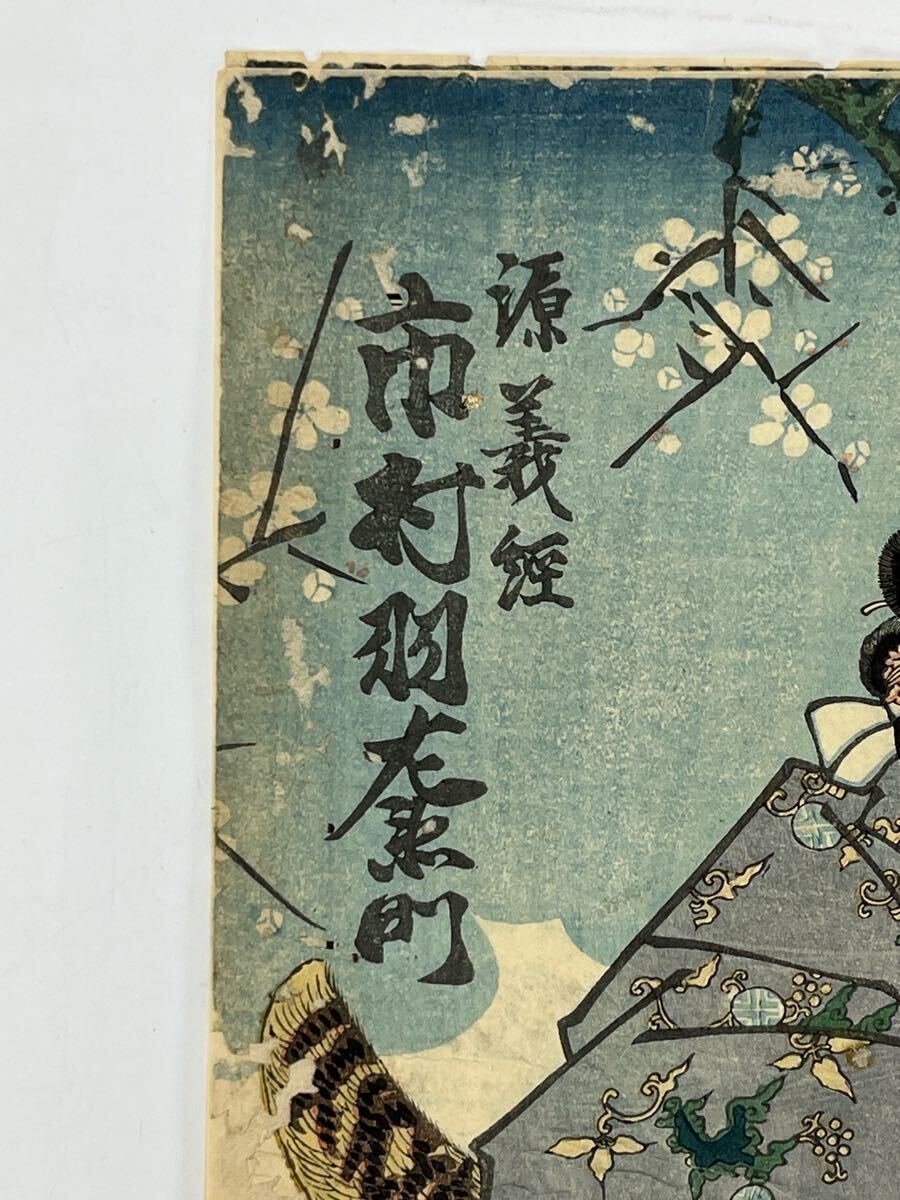 源義経
市村羽左衛門